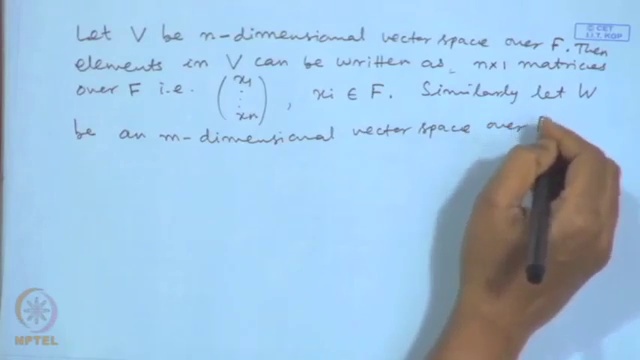 Let V be n-dimensional vector space over F. Then
elements in V can be written as, n×1 matrices
over F i.e. (x1 ⋮ xn), xi ∈ F. Similarly let W
be an m-dimensional vector space over
© CET
I.I.T. KGP
NPTEL